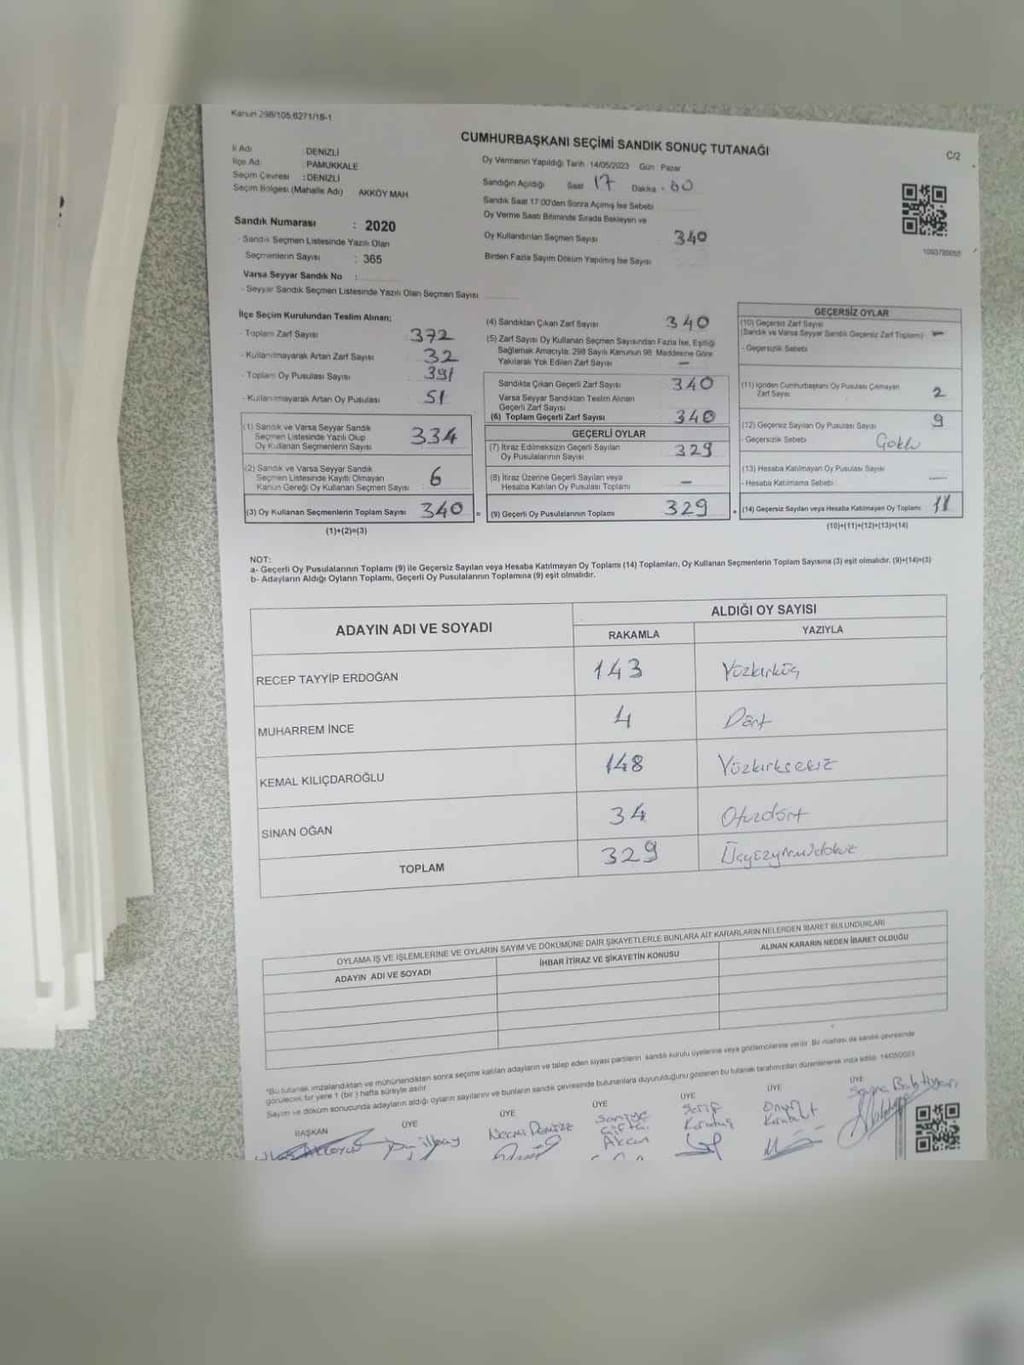 Kanun 298/105,6271/18-1
CUMHURBAŞKANI SEÇİMİ SANDIK SONUÇ TUTANAĞI
C/2
İl Adı : DENİZLİ
İlçe Adı : PAMUKKALE
Seçim Çevresi : DENİZLİ
Seçim Bölgesi (Mahalle Adı) AKKÖY MAH
Oy Vermenin Yapıldığı Tarih 14/05/2023 Gün Pazar
Sandığın Açıldığı Saat 17 Dakika 00
Sandık Saat 17:00'den Sonra Açılmış İse Sebebi
Oy Verme Saati Bitiminde Sırada Bekleyen ve
Oy Kullandırılan Seçmen Sayısı 340
Birden Fazla Sayım Döküm Yapılmış İse Sayısı
Sandık Numarası : 2020
- Sandık Seçmen Listesinde Yazılı Olan
Seçmenlerin Sayısı : 365
Varsa Seyyar Sandık No :
- Seyyar Sandık Seçmen Listesinde Yazılı Olan Seçmen Sayısı
İlçe Seçim Kurulundan Teslim Alınan;
- Toplam Zarf Sayısı 372
- Kullanılmayarak Artan Zarf Sayısı 32
- Toplam Oy Pusulası Sayısı 391
- Kullanılmayarak Artan Oy Pusulası 51
(1) Sandık ve Varsa Seyyar Sandık
Seçmen Listesinde Yazılı Olup
Oy Kullanan Seçmenlerin Sayısı 334
(2) Sandık ve Varsa Seyyar Sandık
Seçmen Listesinde Kayıtlı Olmayan
Kanun Gereği Oy Kullanan Seçmen Sayısı 6
(3) Oy Kullanan Seçmenlerin Toplam Sayısı 340
(1)+(2)=(3)
(4) Sandıktan Çıkan Zarf Sayısı 340
(5) Zarf Sayısı Oy Kullanan Seçmen Sayısından Fazla İse, Eşitliği
Sağlamak Amacıyla; 298 Sayılı Kanunun 98. Maddesine Göre
Yakılarak Yok Edilen Zarf Sayısı -
Sandıkta Çıkan Geçerli Zarf Sayısı 340
Varsa Seyyar Sandıktan Teslim Alınan
Geçerli Zarf Sayısı
(6) Toplam Geçerli Zarf Sayısı 340
GEÇERLİ OYLAR
(7) İtiraz Edilmeksizin Geçerli Sayılan
Oy Pusulalarının Sayısı 329
(8) İtiraz Üzerine Geçerli Sayılan veya
Hesaba Katılan Oy Pusulaları Toplamı -
(9) Geçerli Oy Pusulalarının Toplamı 329
GEÇERSİZ OYLAR
(10) Geçersiz Zarf Sayısı
(Sandık ve Varsa Seyyar Sandık Geçersiz Zarf Toplamı) -
- Geçersizlik Sebebi
(11) İçinden Cumhurbaşkanı Oy Pusulası Çıkmayan
Zarf Sayısı 2
(12) Geçersiz Sayılan Oy Pusulası Sayısı 9
- Geçersizlik Sebebi
(13) Hesaba Katılmayan Oy Pusulası Sayısı
- Hesaba Katılmama Sebebi -
(14) Geçersiz Sayılan veya Hesaba Katılmayan Oy Toplamı 11
(10)+(11)+(12)+(13)=(14)
NOT:
a- Geçerli Oy Pusulalarının Toplamı (9) ile Geçersiz Sayılan veya Hesaba Katılmayan Oy Toplamı (14) Toplamları, Oy Kullanan Seçmenlerin Toplam Sayısına (3) eşit olmalıdır. (9)+(14)=(3)
b- Adayların Aldığı Oyların Toplamı, Geçerli Oy Pusulalarının Toplamına (9) eşit olmalıdır.
ADAYIN ADI VE SOYADI
ALDIĞI OY SAYISI
RAKAMLA YAZIYLA
RECEP TAYYİP ERDOĞAN 143 Yüzkırküç
MUHARREM İNCE 4 Dört
KEMAL KILIÇDAROĞLU 148 Yüzkırksekiz
SİNAN OĞAN 34 Otuzdört
TOPLAM 329 Üçyüzyirmidokuz
OYLAMA İŞ VE İŞLEMLERİNE VE OYLARIN SAYIM VE DÖKÜMÜNE DAİR ŞİKAYETLERLE BUNLARA AİT KARARLARIN NELERDEN İBARET BULUNDUKLARI
ADAYIN ADI VE SOYADI İHBAR İTİRAZ VE ŞİKAYETİN KONUSU ALINAN KARARIN NEDEN İBARET OLDUĞU
"Bu tutanak imzalandıktan ve mühürlendikten sonra seçime katılan adayların ve talep eden siyasi partilerin sandık kurulu üyelerine veya gözlemcilerine verilir. Bu nüshası da sandık çevresinde
görülecek bir yere 1 (bir) hafta süreyle asılır.
Sayım ve döküm sonucunda adayların aldığı oyların sayılarını ve bunların sandık çevresinde bulunanlara duyurulduğunu gösteren bu tutanak tarafımızdan düzenlenerek imza edildi. 14/05/2023
BAŞKAN ÜYE ÜYE ÜYE ÜYE ÜYE ÜYE